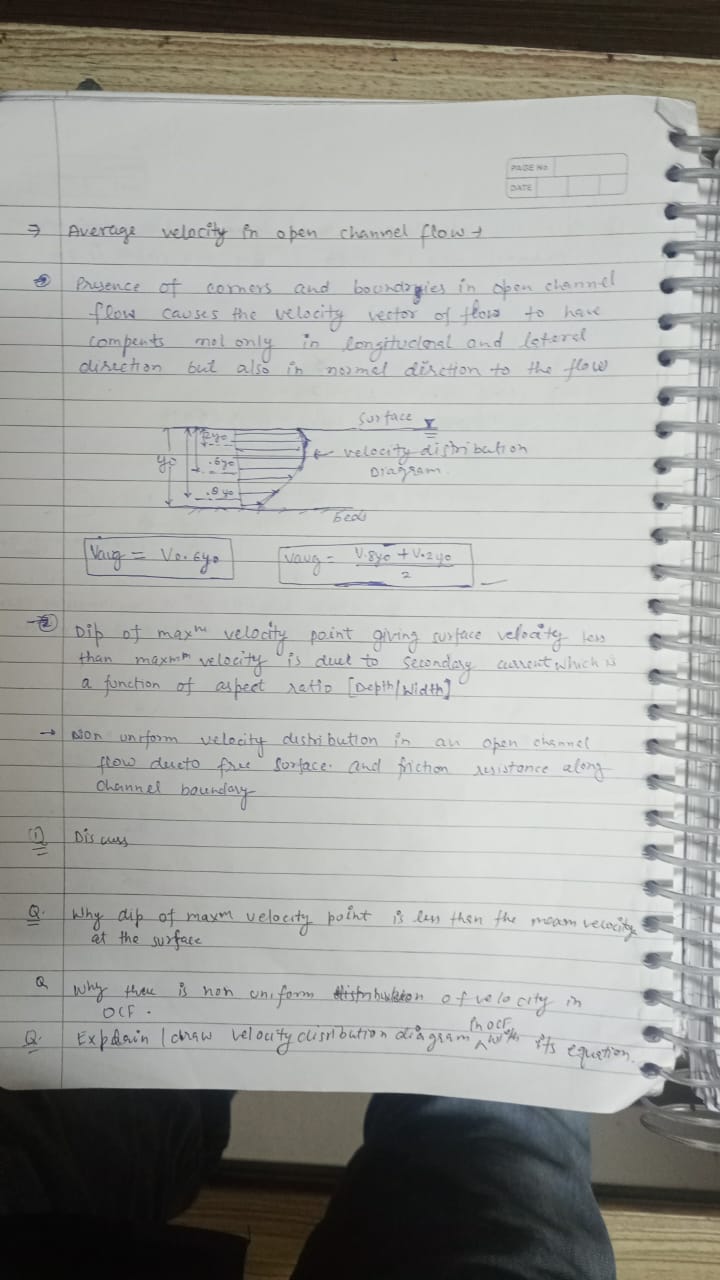 PAGE No.
DATE
⇒ Average velocity in open channel flow →
① Presence of corners and boundries in open channel
flow causes the velocity vector of flow to have
compents not only in longitudonal and lateral
direction but also in normel dirction to the flow
surface
.2y₀
.6y₀
y₀
velocity distribution
Diagram.
.8y₀
beds
Vavg = V0.6y₀
Vavg = V.8y₀ + V.2y₀
2
→② Dip of maxᵐ velocity point giving surface velocity less
than maxmᵐ velocity is duet to secondary current which is
a function of aspect ratio [Depth/Width]
→ Non uniform velocity distribution in an open channel
flow dueto free surface. and friction resistance along
channel boundary
Q Discuss
Q. Why dip of maxm velocity point is less then the meam velocity
at the surface
Q Why thee is non uniform distribution of velocity in
OCF.
Q. Explain / draw velocity distribution diagram in OCF with its equetion.